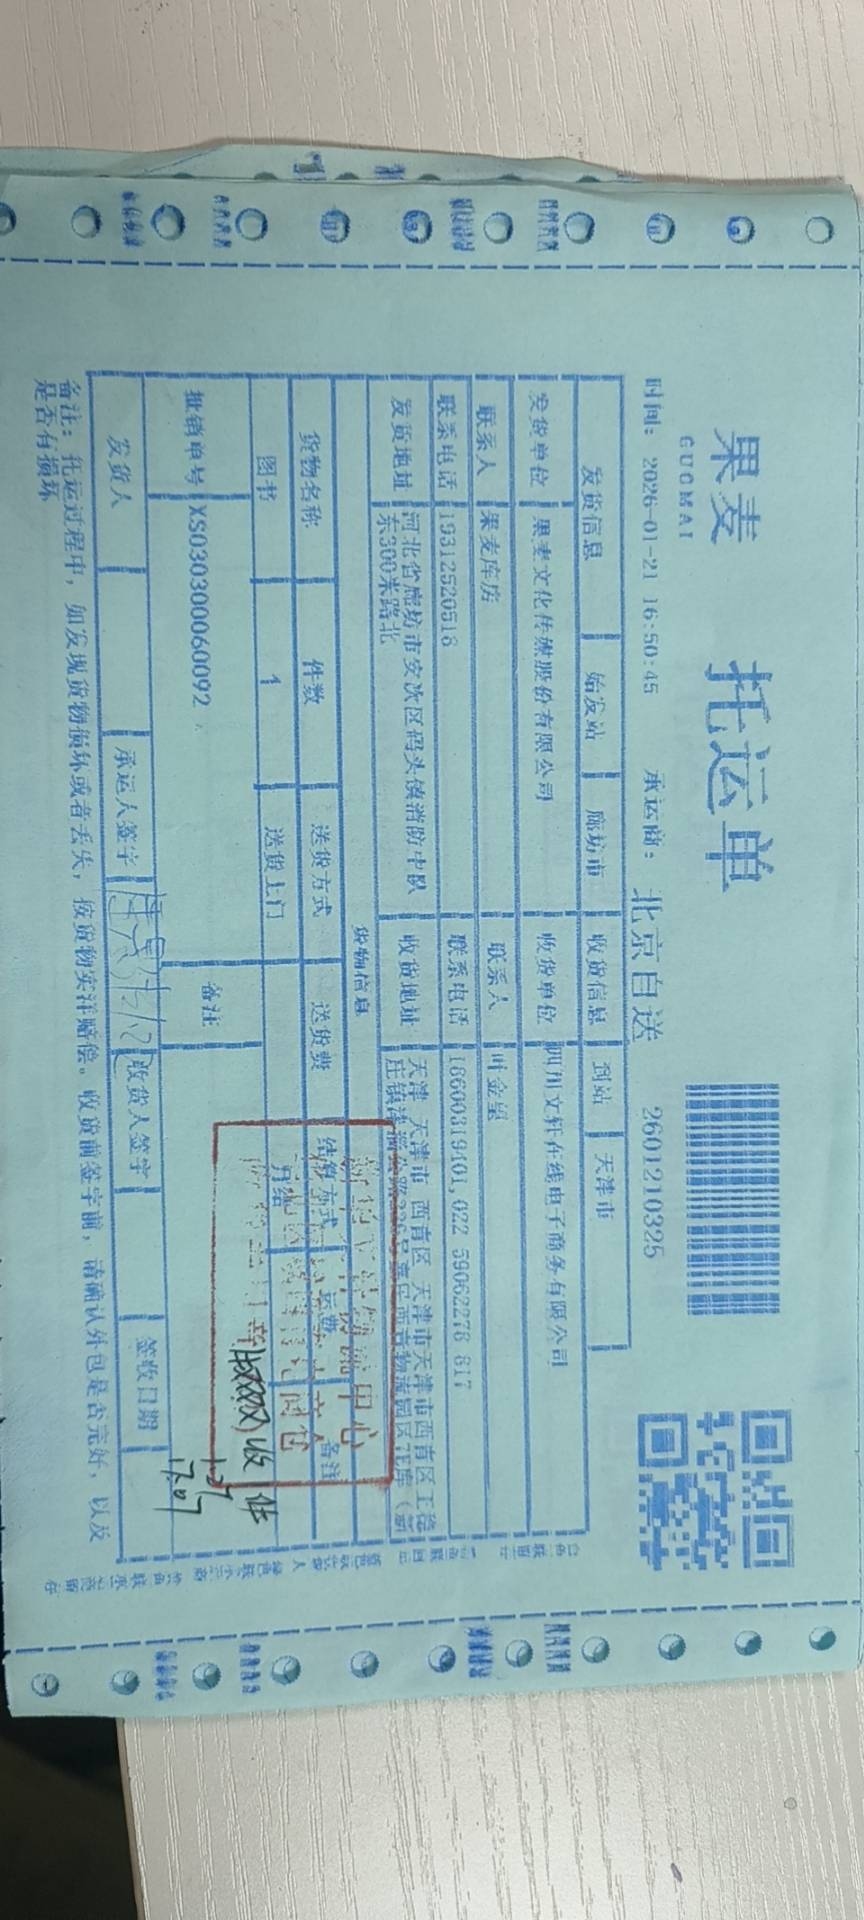 果麦 托运单
GUOMAI
时间：2026-01-21 16:50:45 承运商：北京自送 2601210325
发货信息 始发站 廊坊市 收货信息 到站 天津市
发货单位 果麦文化传媒股份有限公司 收货单位 四川文轩在线电子商务有限公司
联系人 果麦库房 联系人 叶金望
联系电话 19312520516 联系电话 18600319401,022 59062278 817
发货地址 河北省廊坊市安次区码头镇消防中队东300米路北 收货地址 天津 天津市 西青区 天津市天津市西青区王稳庄镇津淄公路
货物信息
货物名称 件数 送货方式 送货费 结算方式 运费 备注
图书 1 送货上门 月结
批销单号 XS030300060092 备注
发货人 承运人签字 收货人签字 签收日期
备注：托运过程中，如发现货物损坏或者丢失，按货物实洋赔偿。收货前签字前，请确认外包是否完好，以及
是否有损坏
物流中心
收 件
1.27
17:07